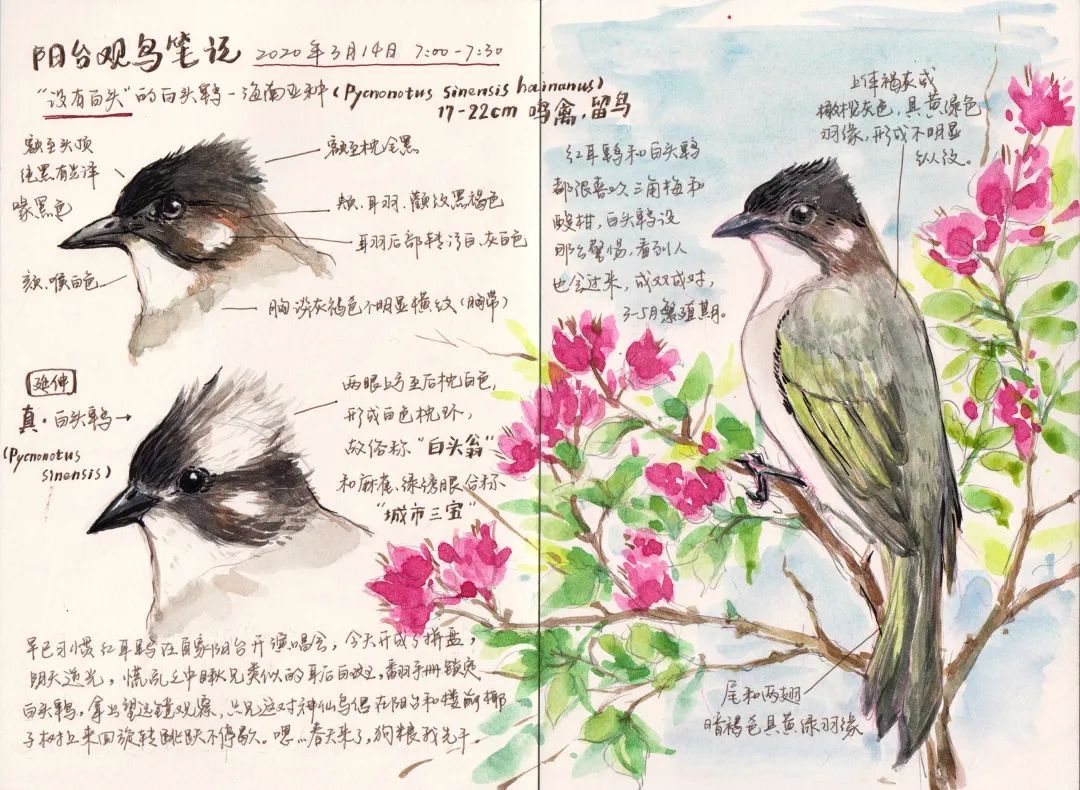 阳台观鸟笔记 2020年3月14日 7:00-7:30
"没有白头"的白头鹎-海南亚种(Pycnonotus sinensis hainanus)
17-22cm 鸣禽,留鸟
额至头顶
纯黑有光泽
喙黑色
颏、喉白色
额至枕全黑
颊、耳羽、颧纹黑褐色
耳羽后部转污白、灰白色
胸淡灰褐色不明显横纹(胸带)
延伸
真·白头鹎→
(Pycnonotus
sinensis)
两眼上方至后枕白色,
形成白色枕环,
故俗称"白头翁"
和麻雀、绿绣眼合称、
"城市三宝"
早已习惯红耳鹎在自家阳台开演唱会,今天开成了拼盘,
明天逆光,慌乱之中瞅见类似的耳后白斑,翻手册锁定
白头鹎,拿出望远镜观察,只见这对神仙鸟侣在阳台和楼前椰
子树上来回旋转跳跃不停歇。嗯...春天来了,狗粮我先干。
红耳鹎和白头鹎
都很喜欢三角梅和
酸柑,白头鹎没
那么警惕,看到人
也会过来,成双成对,
3-5月繁殖期。
上体褐灰或
橄榄灰色,具黄绿色
羽缘,形成不明显
纵纹。
尾和两翅
暗褐色具黄绿羽缘